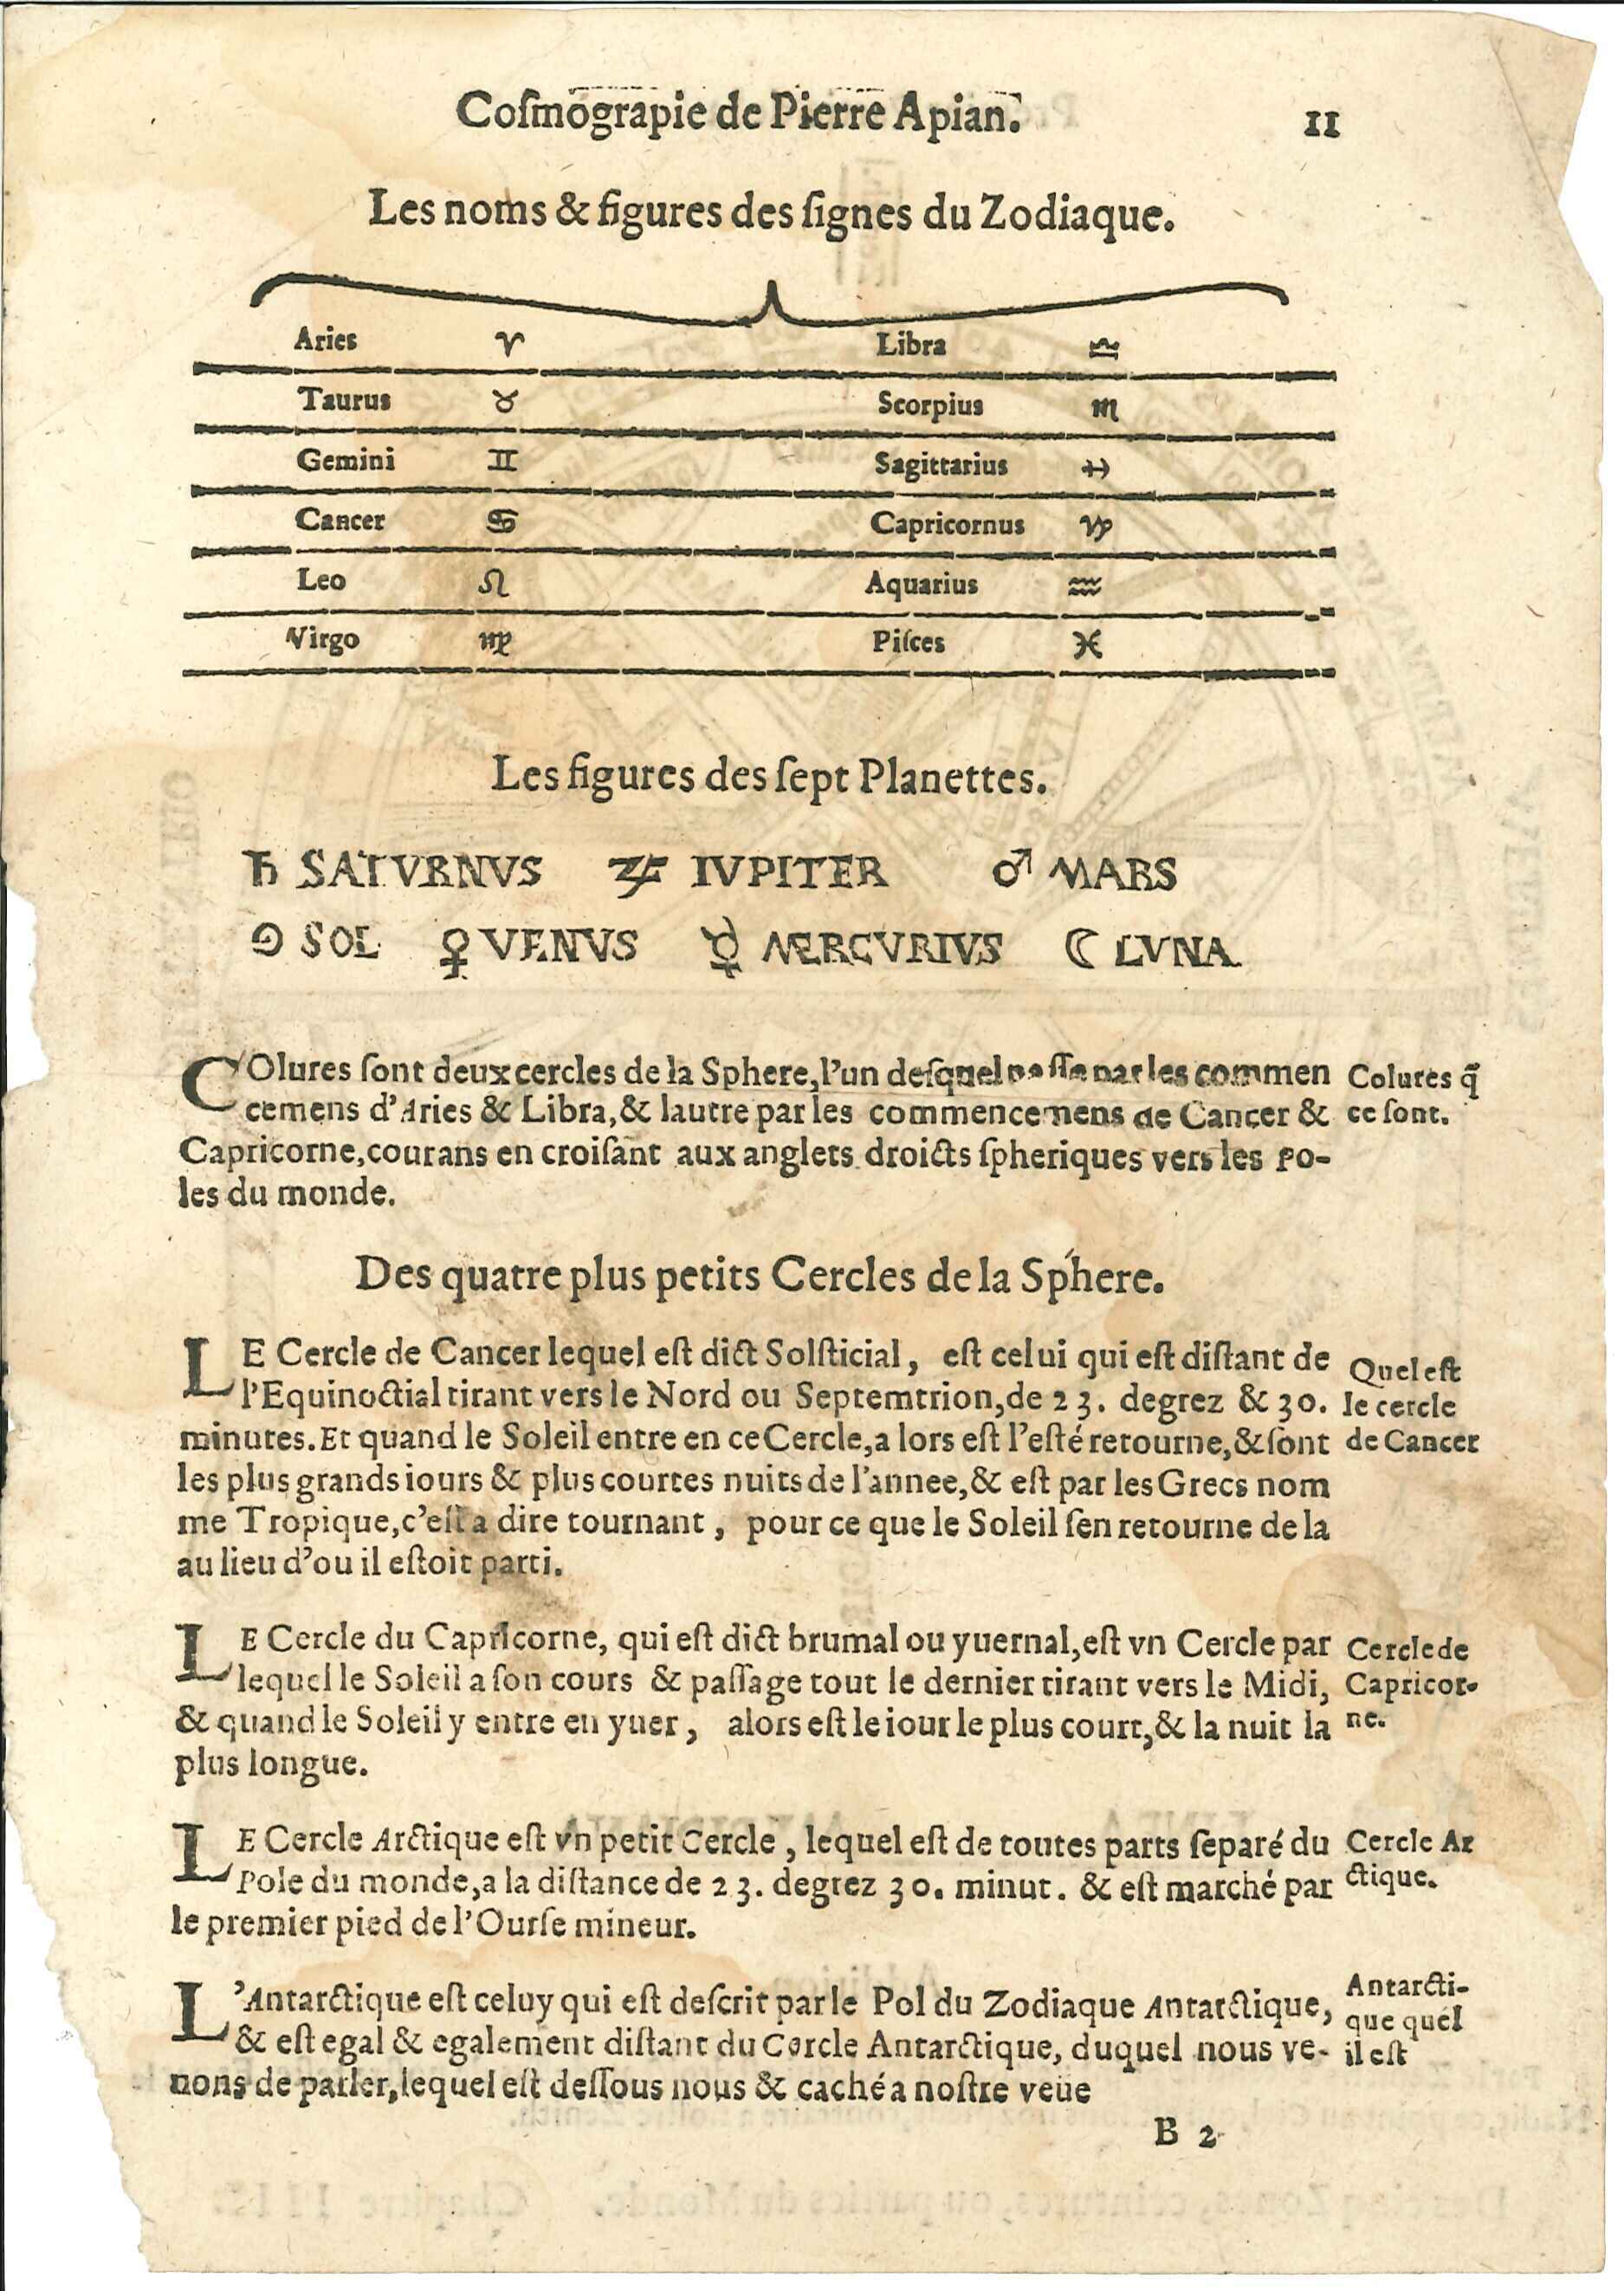 Coſmograpie de Pierre Apian.
11
Les noms & figures des ſignes du Zodiaque.
Aries ♈ Libra ♎
Taurus ♉ Scorpius ♏
Gemini ♊ Sagittarius ♐
Cancer ♋ Capricornus ♑
Leo ♌ Aquarius ♒
Virgo ♍ Piſces ♓
Les figures des ſept Planettes.
♄ SATVRNVS ♃ IVPITER ♂ MARS
☉ SOL ♀ VENVS ☿ MERCVRIVS ☾ LVNA
COlures ſont deux cercles de la Sphere, l'un deſquel paſſe par les commen
cemens d'Aries & Libra, & lautre par les commencemens de Cancer &
Capricorne, courans en croiſant aux anglets droicts ſpheriques vers les po-
les du monde.
Colures q̃
ce ſont.
Des quatre plus petits Cercles de la Sphere.
LE Cercle de Cancer lequel eſt dict Solſticial, eſt celui qui eſt diſtant de
l'Equinoctial tirant vers le Nord ou Septemtrion, de 23. degrez & 30.
minutes. Et quand le Soleil entre en ce Cercle, a lors eſt l'eſté retourne, & ſont
les plus grands iours & plus courtes nuits de l'annee, & eſt par les Grecs nom
me Tropique, c'eſt a dire tournant, pour ce que le Soleil ſen retourne de la
au lieu d'ou il eſtoit parti.
Quel eſt
le cercle
de Cancer
LE Cercle du Capricorne, qui eſt dict brumal ou yuernal, eſt vn Cercle par
lequel le Soleil a ſon cours & paſſage tout le dernier tirant vers le Midi,
& quand le Soleil y entre en yuer, alors eſt le iour le plus court, & la nuit la
plus longue.
Cercle de
Capricor-
ne.
LE Cercle Arctique eſt vn petit Cercle, lequel eſt de toutes parts ſeparé du
Pole du monde, a la diſtance de 23. degrez 30. minut. & eſt marché par
le premier pied de l'Ourſe mineur.
Cercle Ar
ctique.
L'Antarctique eſt celuy qui eſt deſcrit par le Pol du Zodiaque Antarctique,
& eſt egal & egalement diſtant du Cercle Antarctique, duquel nous ve-
nons de parler, lequel eſt deſſous nous & caché a noſtre veüe
Antarcti-
que quel
il eſt
B 2